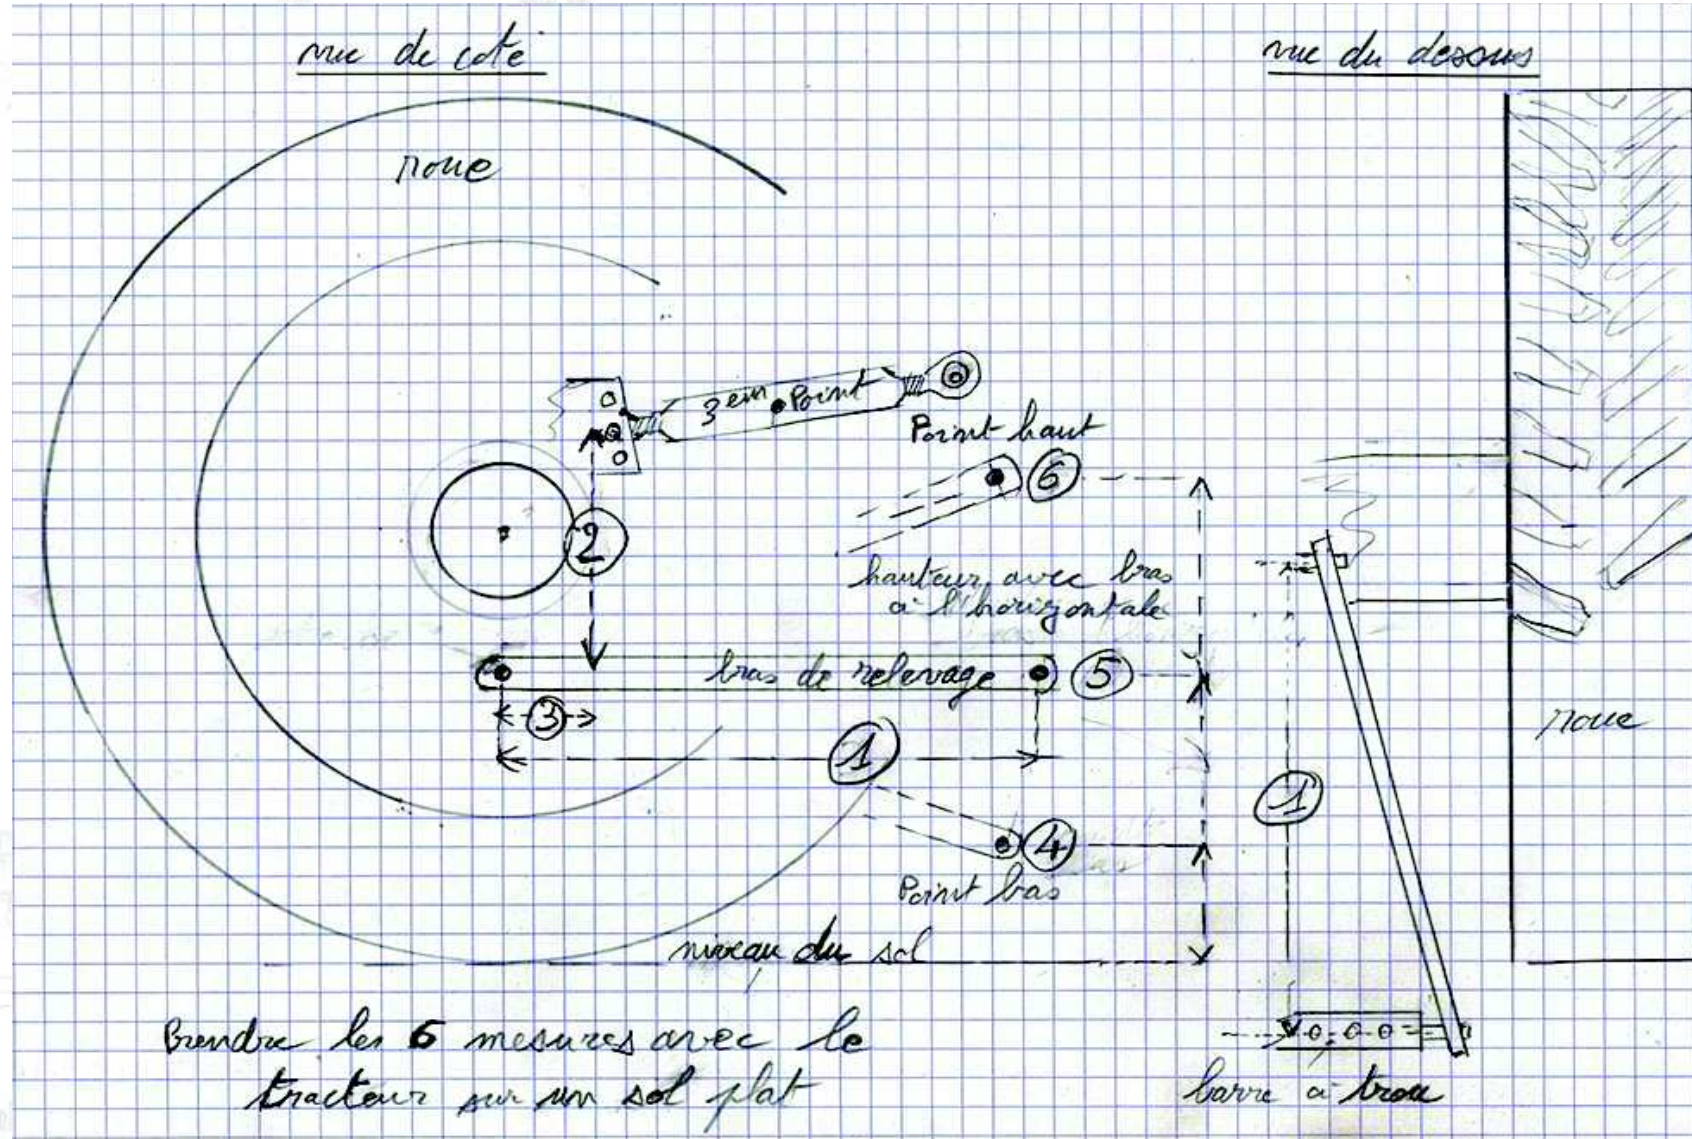 vue de coté
vue du dessus
roue
3em Point
Point haut
6
2
hauteur avec bras
a l'horizontale
bras de relevage
5
3
1
roue
1
4
Point bas
niveau du sol
Prendre les 6 mesures avec le
tracteur sur un sol plat
barre a trou